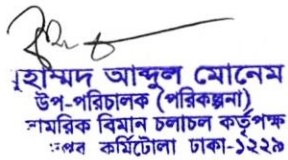 মুহাম্মদ আব্দুল মোনেম
উপ-পরিচালক (পরিকল্পনা)
বেসামরিক বিমান চলাচল কর্তৃপক্ষ
কুর্মিটোলা ঢাকা-১২২৯